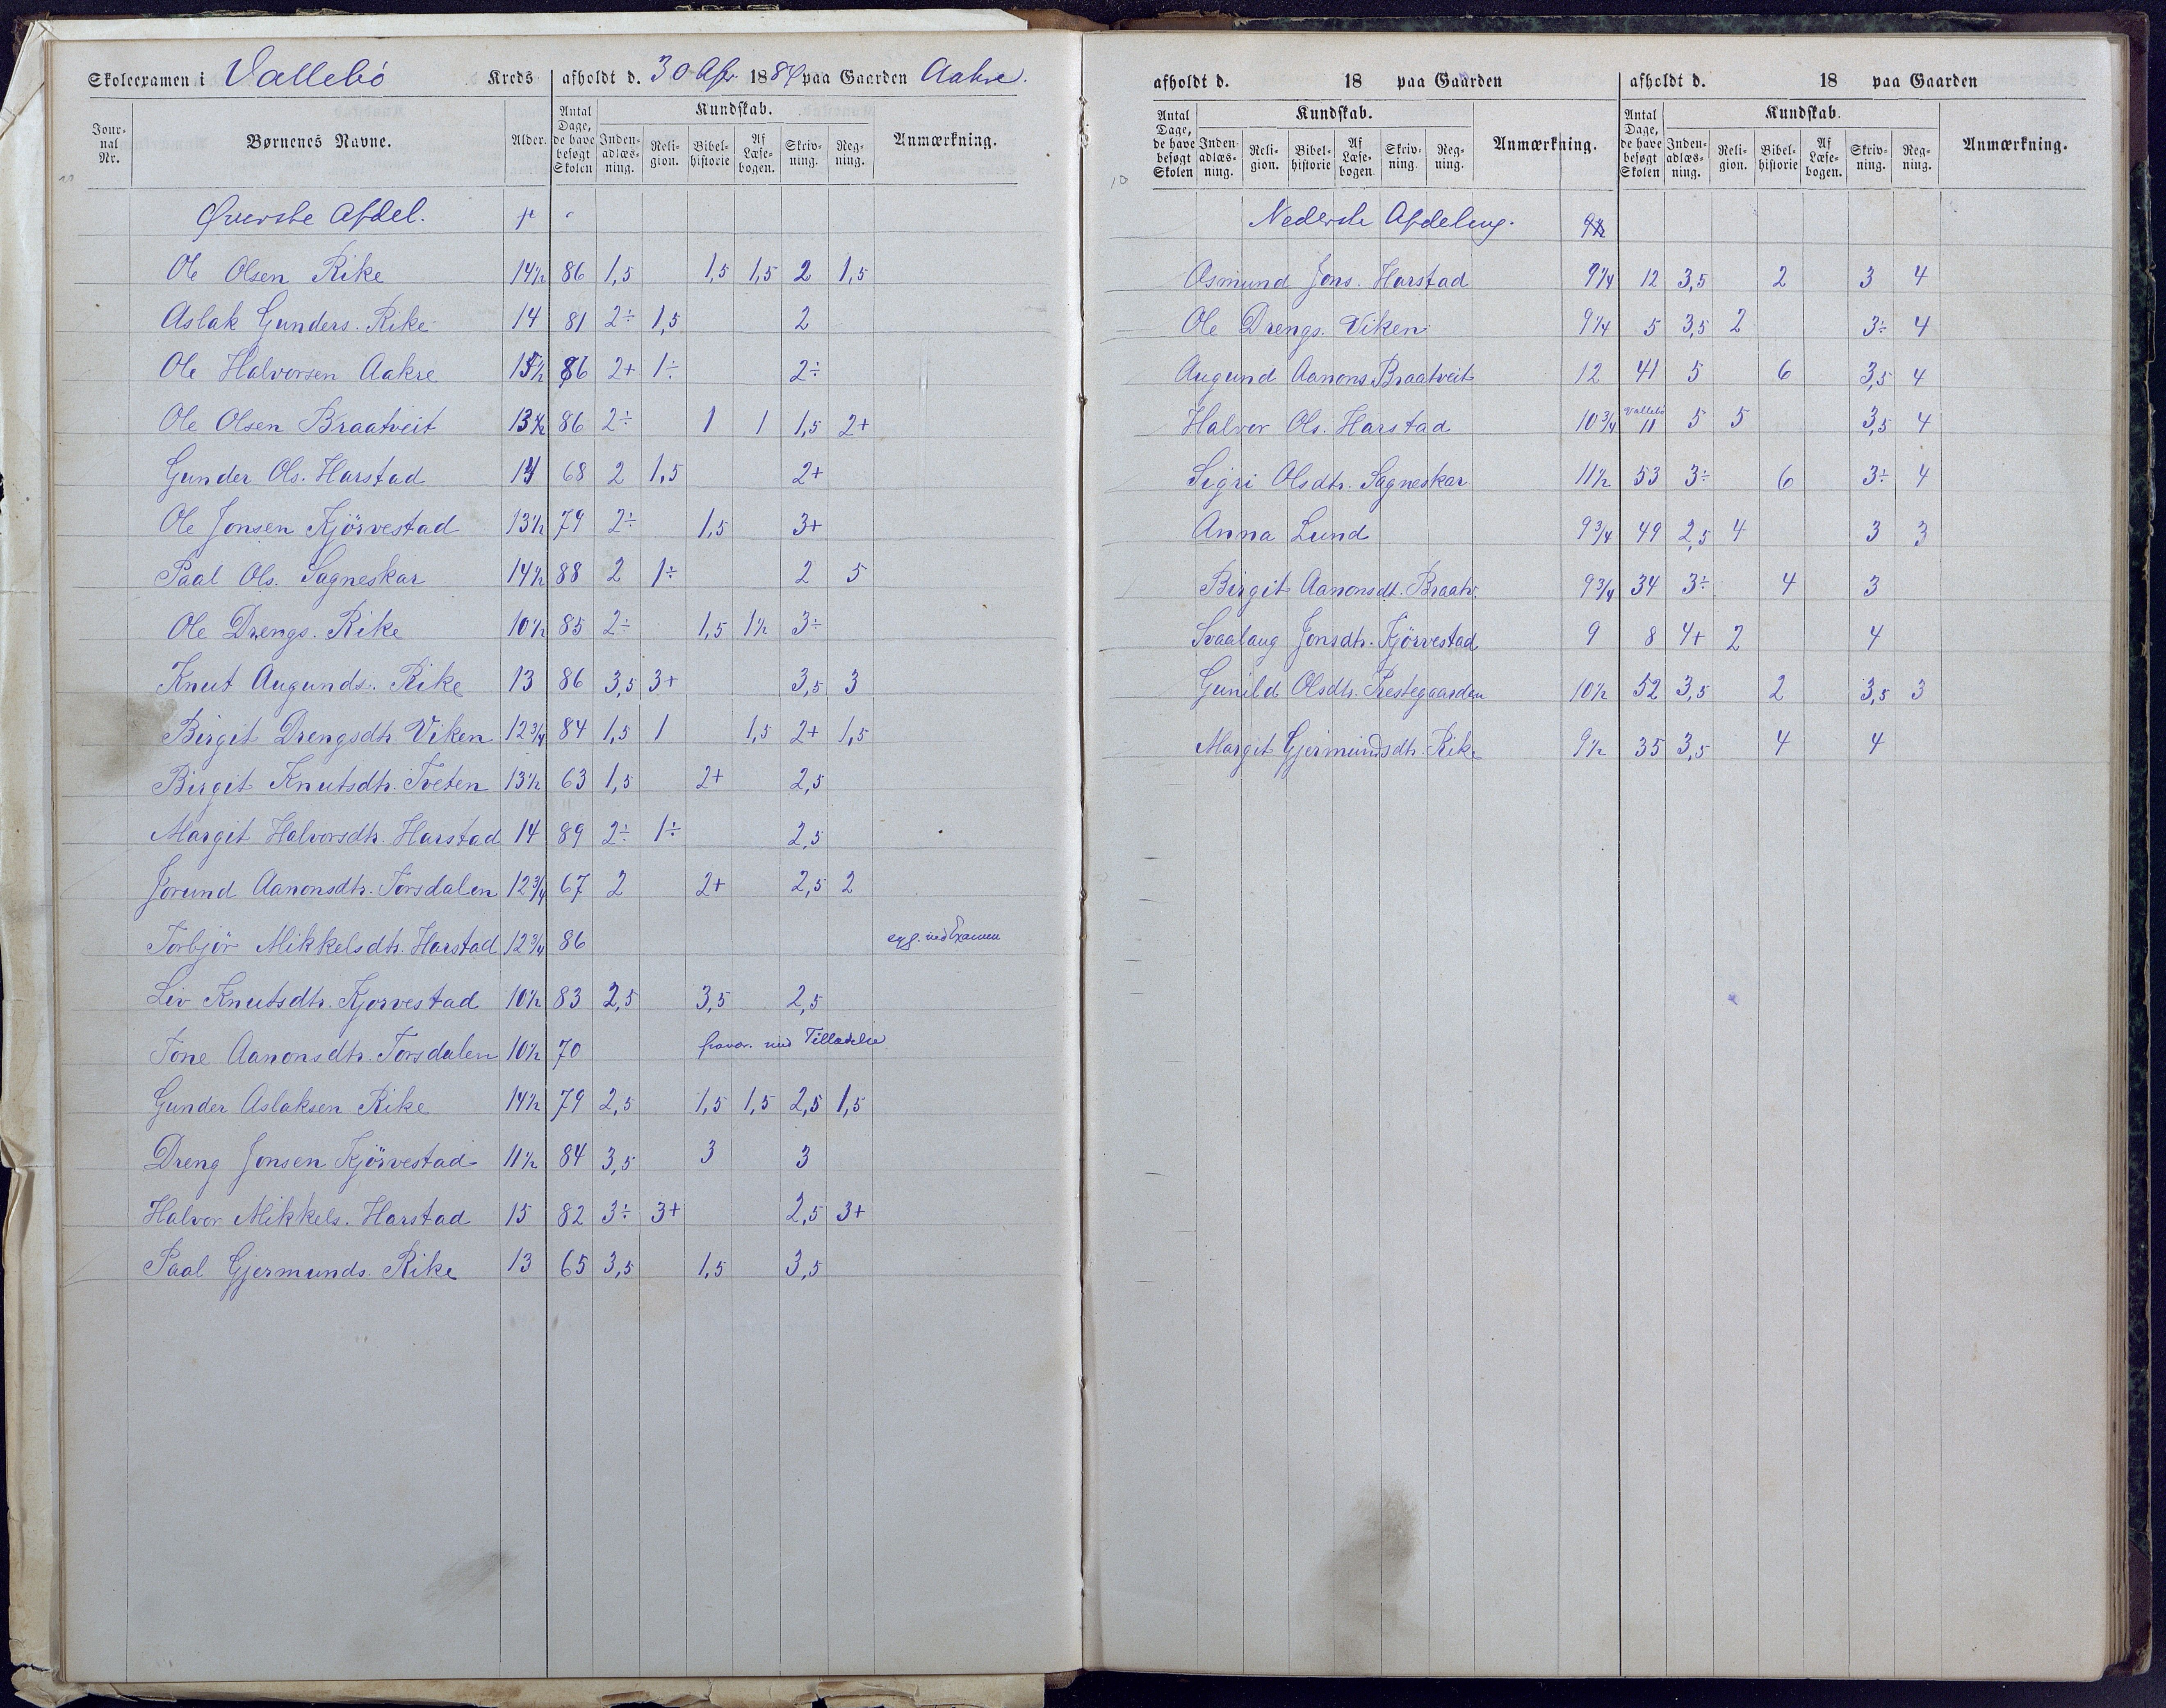 Skoleexamen i Vallebö Kreds afholdt d. 30 Apr. 1884 paa Gaarden Aakre.
Journal Nr. Børnenes Navne. Alder. Antal Dage, de have besøgt Skolen Kundskab. Indenadlæsning. Religion. Bibelhistorie Af Læsebogen. Skrivning. Regning. Anmærkning.
Øverste Afdel.
Ole Olsen Rike 14½ 86 1,5 1,5 1,5 2 1,5
Aslak Gunders. Rike 14 81 2÷ 1,5 2
Ole Halvorsen Aakre 86 2+ 1÷ 2÷
Ole Olsen Braatveit 86 2÷ 1 1 1,5 2+
Gunder Ols. Harstad 14 68 2 1,5 2+
Ole Jonsen Kjörvestad 13½ 79 2÷ 1,5 3+
Paal Ols. Sagneskar 14½ 88 2 1÷ 2 5
Ole Drengs. Rike 10½ 85 2÷ 1,5 1½ 3÷
Knut Augunds. Rike 13 86 3,5 3+ 3,5 3
Birgit Drengsdtr. Viken 12¾ 84 1,5 1 1,5 2+ 1,5
Birgit Knutsdtr. Tveten 13½ 63 1,5 2+ 2,5
Margit Halvorsdtr. Harstad 14 89 2÷ 1÷ 2,5
Jorund Aanonsdtr. Torsdalen 12¾ 67 2 2+ 2,5 2
Torbjör Mikkelsdtr. Harstad 12¾ 86 syg. ved Examen
Liv Knutsdtr. Kjorvestad 10½ 83 2,5 3,5 2,5
Tone Aanonsdtr. Torsdalen 10½ 70 fravær. med Tilladelse
Gunder Aslaksen Rike 14½ 79 2,5 1,5 1,5 2,5 1,5
Dreng Jonsen Kjörvestad 11½ 84 3,5 3 3
Halvor Mikkels. Harstad 15 82 3÷ 3+ 2,5 3+
Paal Gjermunds. Rike 13 65 3,5 1,5 3,5
afholdt d. 18 paa Gaarden afholdt d. 18 paa Gaarden
Antal Dage, de have besøgt Skolen Kundskab. Indenadlæsning. Religion. Bibelhistorie Af Læsebogen. Skrivning. Regning. Anmærkning. Antal Dage, de have besøgt Skolen Kundskab. Indenadlæsning. Religion. Bibelhistorie Af Læsebogen. Skrivning. Regning. Anmærkning.
10
Nederste Afdeling.
Osmund Jons. Harstad 9¼ 12 3,5 2 3 4
Ole Drengs. Viken 9¼ 5 3,5 2 3÷ 4
Augund Aanons. Braatveit 12 41 5 6 3,5 4
Halvor Ols. Harstad 10¾ Vallebö 11 5 5 3,5 4
Sigri Olsdtr. Sagneskar 11½ 53 3÷ 6 3÷ 4
Anna Lund 9¾ 49 2,5 4 3 3
Birgit Aanonsdt. Braatv. 9¾ 34 3÷ 4 3
Svaalaug Jonsdtr. Kjörvestad 9 8 4+ 2 4
Gunild Olsdtr. Prestegaarden 10½ 52 3,5 2 3,5 3
Margit Gjermundsdtr. Rike 9½ 35 3,5 4 4